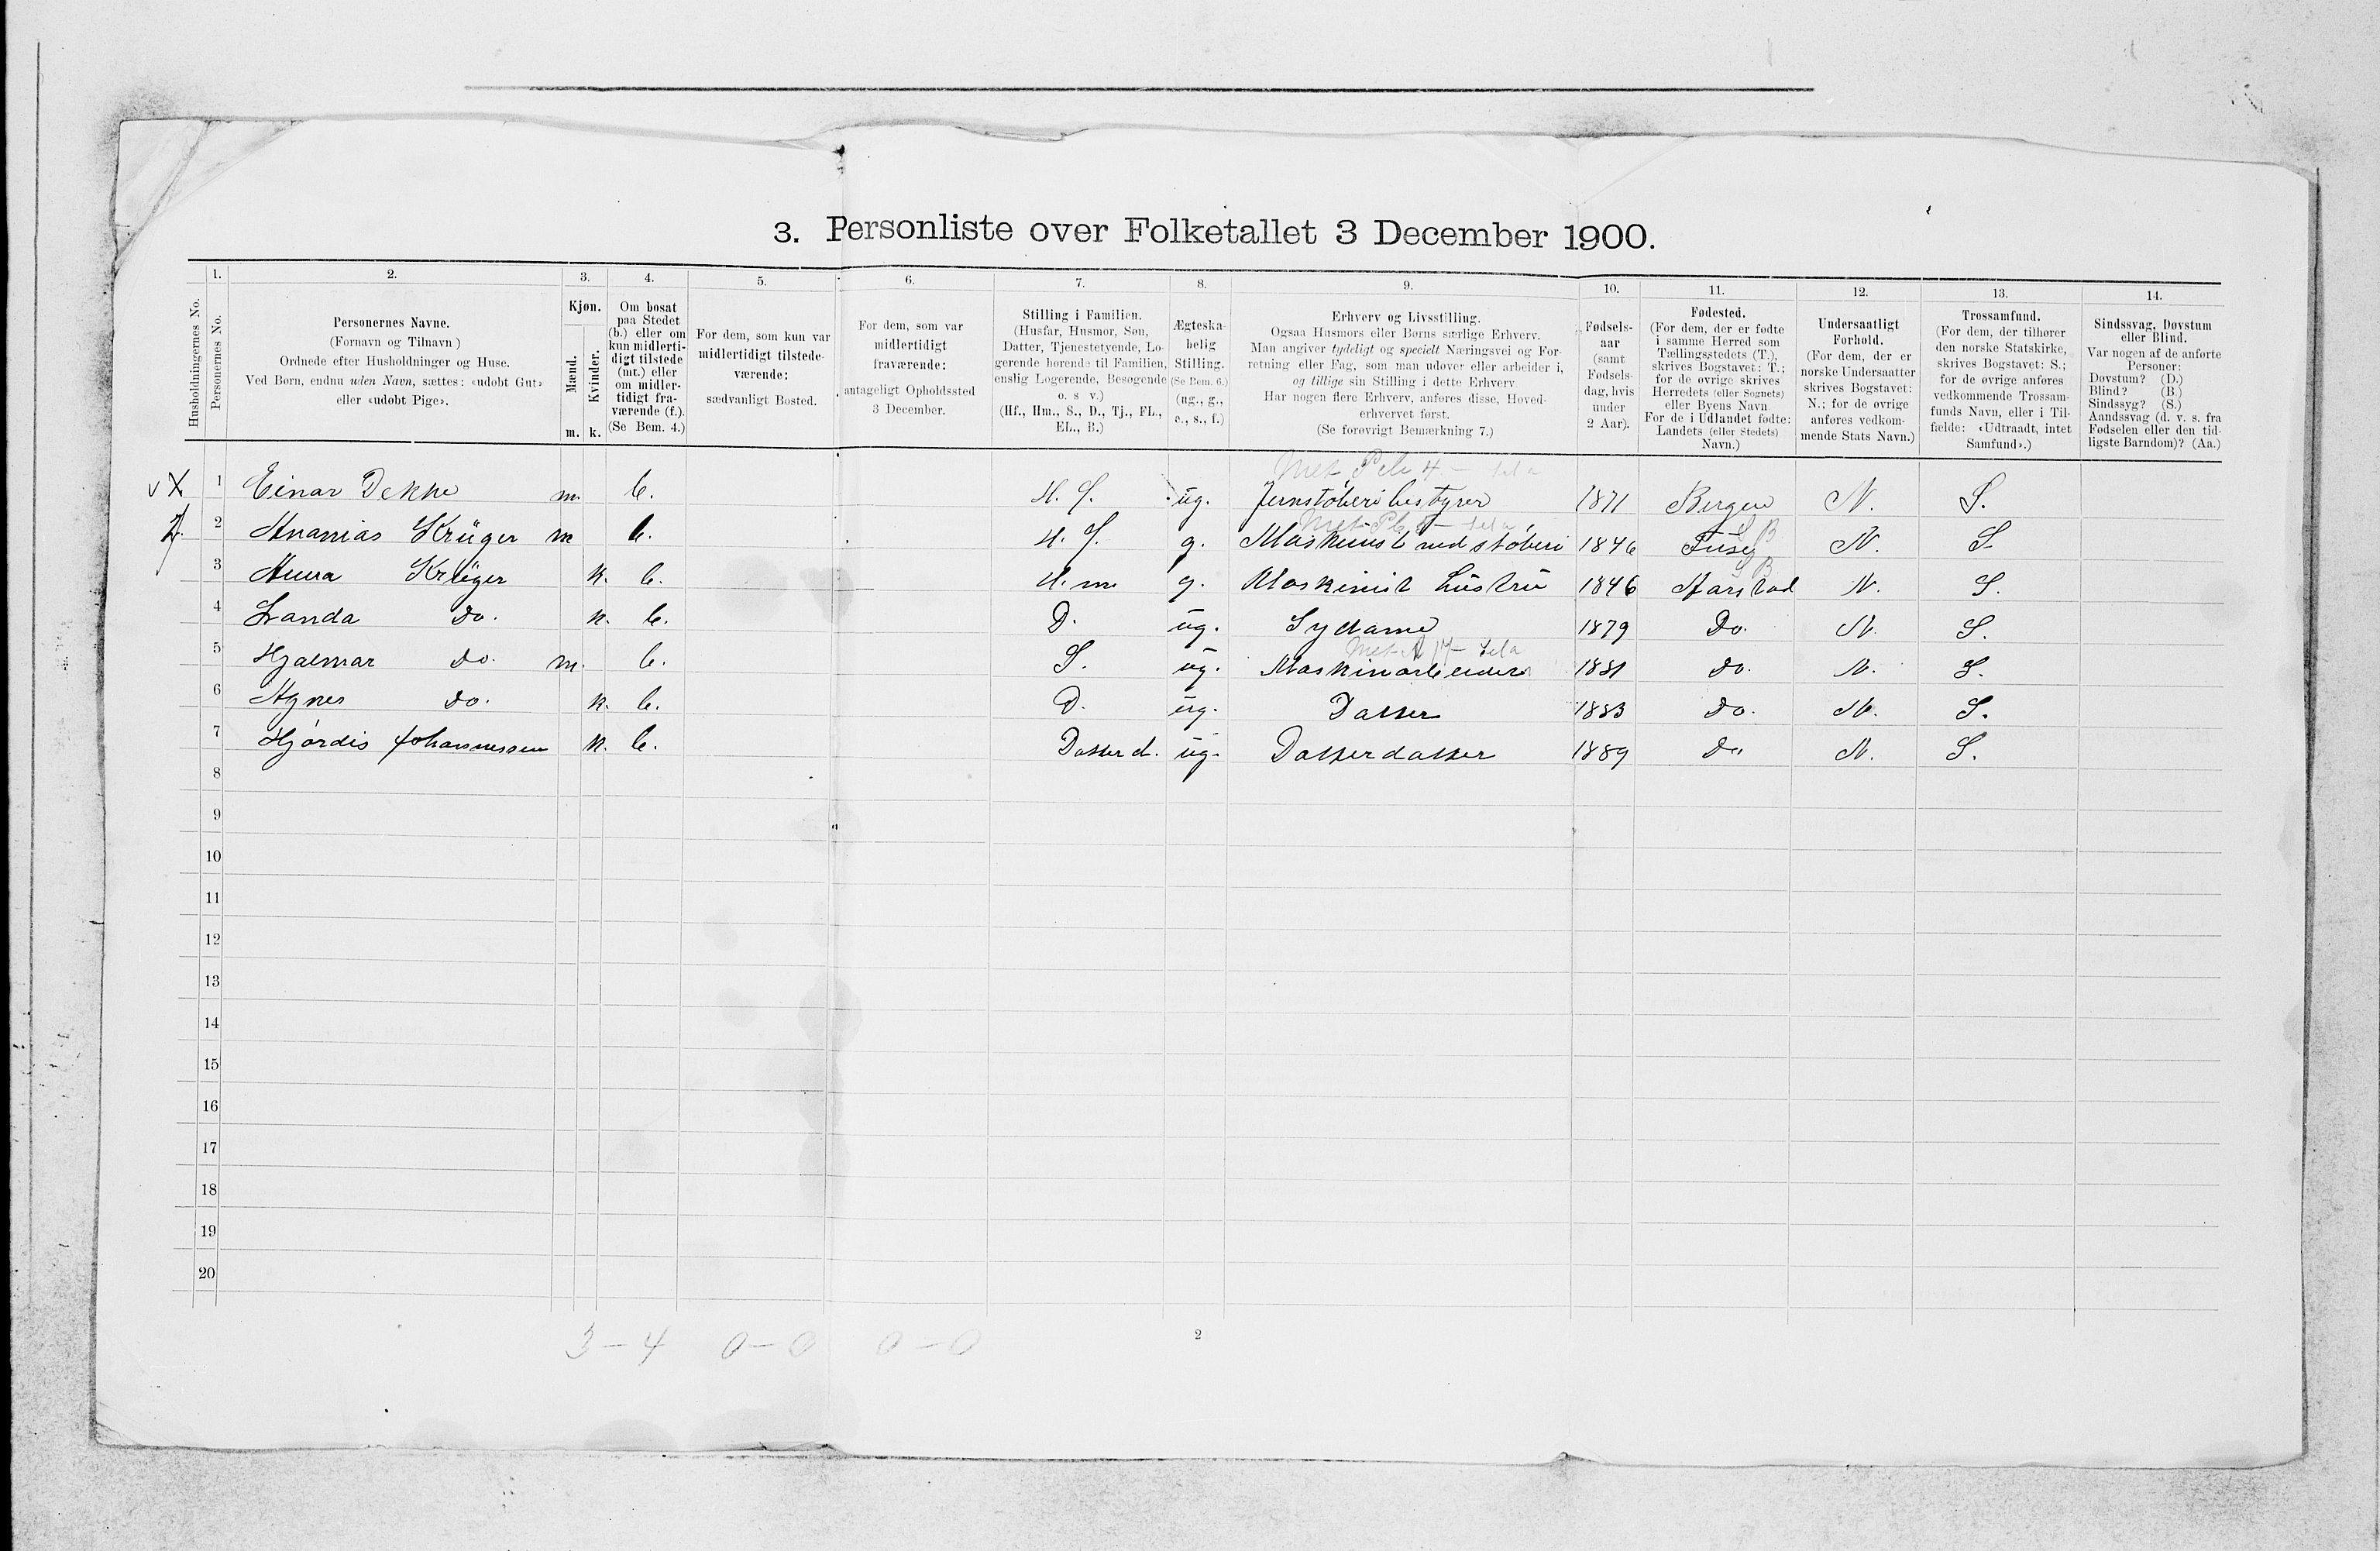 3. Personliste over Folketallet 3 December 1900.
1. 2. 3. 4. 5. 6. 7. 8. 9. 10. 11. 12. 13. 14.
Husholdningernes No.
Personernes No.
Personernes Navne.
(Fornavn og Tilnavn)
Ordnede efter Husholdninger og Huse.
Ved Børn, endnu uden Navn, sættes: «udøbt Gut»
eller «udøbt Pige».
Kjøn.
Mænd.
Kvinder.
m. k.
Om bosat
paa Stedet
(b.) eller om
kun midlerti-
digt tilstede
(mt.) eller
om midler-
tidigt fra-
værende (f.).
(Se Bem. 4.)
For dem, som kun var
midlertidigt tilstede-
værende:
sædvanligt Bosted.
For dem, som var
midlertidigt
fraværende:
antageligt Opholdssted
3 December.
Stilling i Familien.
(Husfar, Husmor, Søn,
Datter, Tjenestetyende, Lo-
gerende hørende til Familien,
enslig Logerende, Besøgende
o. s v.)
(Hf., Hm., S., D., Tj., FL.,
EL., B.)
Ægteska-
belig
Stilling.
(Se Bem. 6.)
(ug., g.,
e., s., f.)
Erhverv og Livsstilling.
Ogsaa Husmors eller Børns særlige Erhverv.
Man angiver tydeligt og specielt Næringsvei og For-
retning eller Fag, som man udøver eller arbeider i,
og tillige sin Stilling i dette Erhverv
Har nogen flere Erhverv, anføres disse, Hoved-
erhvervet først.
(Se forøvrigt Bemærkning 7.)
Fødsels-
aar
(samt
Fødsels-
dag, hvis
under
2 Aar).
Fødested.
(For dem, der er fødte
i samme Herred som
Tællingsstedets (T.),
skrives Bogstavet: T.;
for de øvrige skrives
Herredets (eller Sognets)
eller Byens Navn
For de i Udlandet fødte:
Landets (eller Stedets)
Navn.)
Undersaatligt
Forhold.
(For dem, der er
norske Undersaatter
skrives Bogstavet:
N.; for de øvrige
anføres vedkom-
mende Stats Navn.)
Trossamfund.
(For dem, der tilhører
den norske Statskirke,
skrives Bogstavet: S.;
for de øvrige anføres
vedkommende Trossam-
funds Navn, eller i Til-
fælde: «Udtraadt, intet
Samfund».)
Sindssvag, Døvstum
eller Blind.
Var nogen af de anførte
Personer:
Døvstum? (D.)
Blind? (B.)
Sindssyg? (S.)
Aandssvag (d. v. s. fra
Fødselen eller den tid-
ligste Barndom)? (Aa.)
1 Einar Dekke m. b. H. f. ug. Jernstøberibestyrer 1871 Bergen N. S.
2 Ananias Krüger m b. H. f. g. Maskinist ved støberi 1846 Fuse S B N. S
3 Anna Krüger k. b. H. m g. Maskinist hustru 1846 Aarstad S B N. S.
4 Wanda Do. k. b. D. ug. Sydame 1879 Do. N. S.
5 Hjalmar do. m. b. S. ug. Maskinarbeider 1881 do. N. S.
6 Agnes do. k. b. D. ug. Datter 1883 do. N. S.
7 Hjørdis Johannessen k. b. Datter d. ug. Datterdatter 1889 do N. S.
8
9
10
11
12
13
14
15
16
17
18
19
20
3 – 4 0 – 0 0 – 0
2